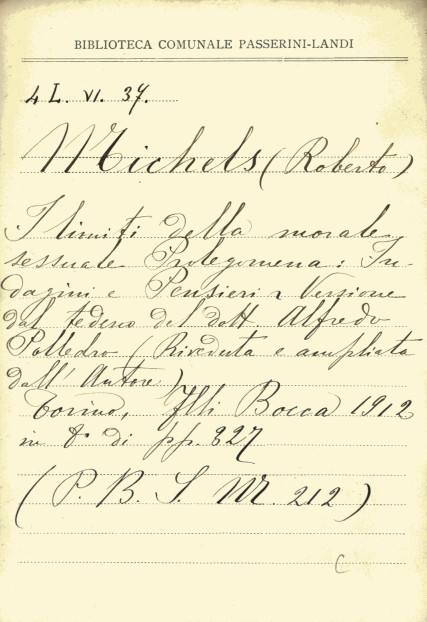 BIBLIOTECA COMUNALE PASSERINI-LANDI
4 L. VI. 37.
Michels (Roberto)
I limiti della morale
sessuale Prolegomena: In-
dagini e Pensieri Versione
dal tedesco del dott Alfredo
Polledro (Riveduta e ampliata
dall' Autore)
Torino, Flli Bocca 1912
in 8° di pp. 327
(P. B. S. M. 212)
C